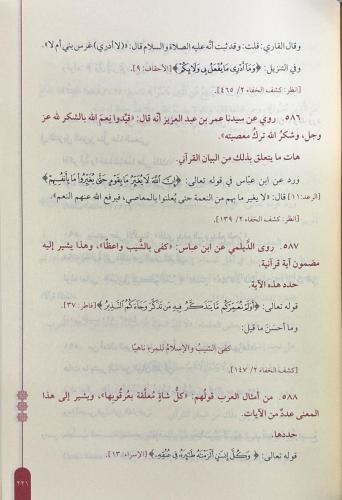 وقال القاري: قلت: وقد ثبت أنَّه عليه الصلاة والسلام قال: «(لا أدري) غرس بني أم لا».
وفي التنزيل: ﴿وَمَا أَدْرِي مَا يُفْعَلُ بِي وَلَا بِكُمْ﴾ [الأحقاف: ٩].
[انظر: كشف الخفاء ٢/ ٤٦٥].
٥٨٦. روي عن سيدنا عمر بن عبد العزيز أنَّه قال: «قيِّدوا نِعَمَ الله بالشكر لله عز
وجل، وشكرُ الله تركُ معصيته».
هات ما يتعلق بذلك من البيان القرآني.
ورد عن ابن عبَّاس في قوله تعالى: ﴿إِنَّ اللَّهَ لَا يُغَيِّرُ مَا بِقَوْمٍ حَتَّى يُغَيِّرُوا مَا بِأَنفُسِهِمْ﴾
[الرعد: ١١] قال: «لا يغير ما بهم من النعمة حتى يُعلنوا بالمعاصي، فيرفع الله عنهم النعم».
[انظر: كشف الخفاء ٢/ ١٣٩].
٥٨٧. روى الدَّيلمي عن ابن عباس: «كفى بالشَّيب واعظًا»، وهذا يشير إليه
مضمون آية قرآنية.
حدد هذه الآية.
قوله تعالى: ﴿أَوَلَمْ نُعَمِّرْكُم مَّا يَتَذَكَّرُ فِيهِ مَن تَذَكَّرَ وَجَاءَكُمُ النَّذِيرُ﴾ [فاطر: ٣٧].
وما أحسَنَ ما قيل:
كفى الشيبُ والإسلامُ للمرءِ ناهيًا
[كشف الخفاء ٢/ ١٤٧].
٥٨٨. من أمثال العرب قولُهم: «كلُّ شاةٍ مُعلَّقة بعُرقُوبها»، ويشير إلى هذا
المعنى عددٌ من الآيات.
حددها.
قوله تعالى: ﴿وَكُلَّ إِنسَانٍ أَلْزَمْنَاهُ طَائِرَهُ فِي عُنُقِهِ﴾ [الإسراء: ١٣].
٢٢١